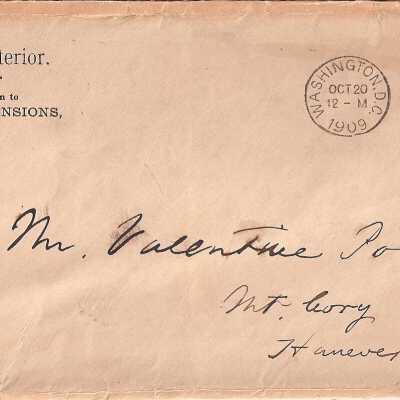 terior.
n to
NSIONS,
WASHINGTON, D.C.
OCT 20
12 - M
1909
Mr. Valentine Po
Mt. Cory